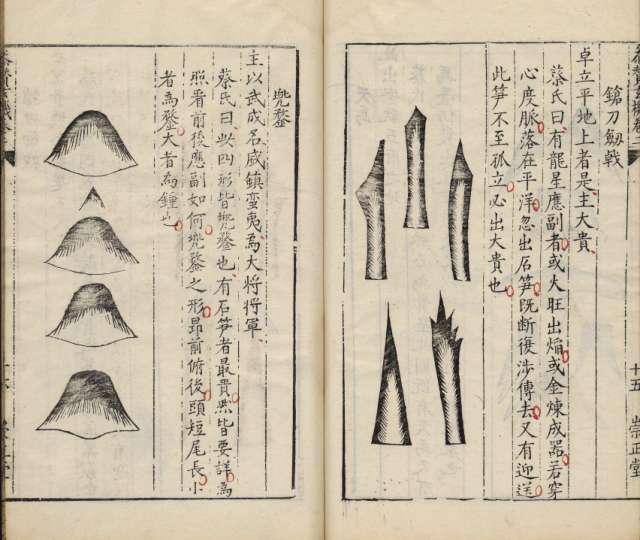 十五
崇正堂
鎗刀劔戟
卓立平地上者是主大貴
蔡氏曰有龍星應副者或火旺出熖或金煉成噐若穿
心度脈落在平洋忽出石笋既断復涉傳去又有迎送
此笋不至孤立必出大貴也
兜鍪
主以武成名威鎮蛮夷為大將將軍
蔡氏曰此四形皆兜鍪也有石笋者最貴然皆要詳為
照看前後應副如何兜鍪之形昻前俯後頭短尾長小
者為鍪大者為鍾也